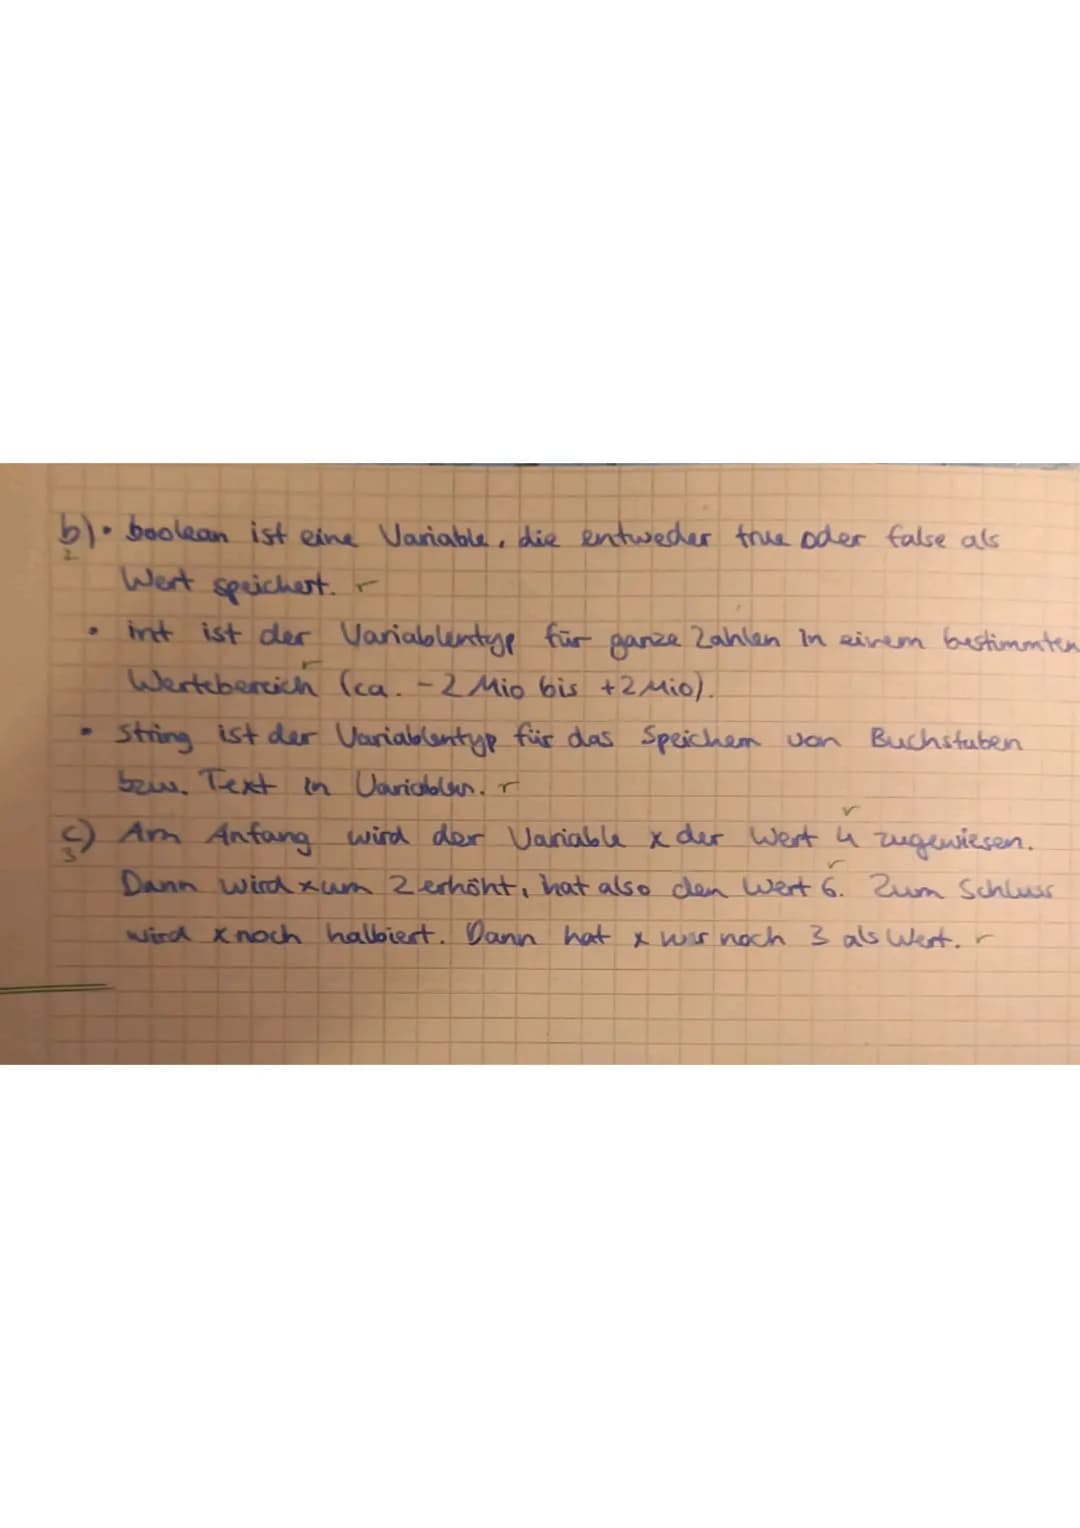 b) • boolean ist eine Variable, die entweder true oder false als
2
Wert speichert. r
• int ist der Variablentyp für ganze Zahlen in einem bestimmten
Wertebereich (ca. -2 Mio bis +2 Mio).
• String ist der Variablentyp für das Speichern von Buchstaben
bzw. Text in Variablen. r
c) Am Anfang wird der Variable x der Wert 4 zugewiesen.
3
Dann wird x um 2 erhöht, hat also den Wert 6. Zum Schluss
wird x noch halbiert. Dann hat x nur noch 3 als Wert. r